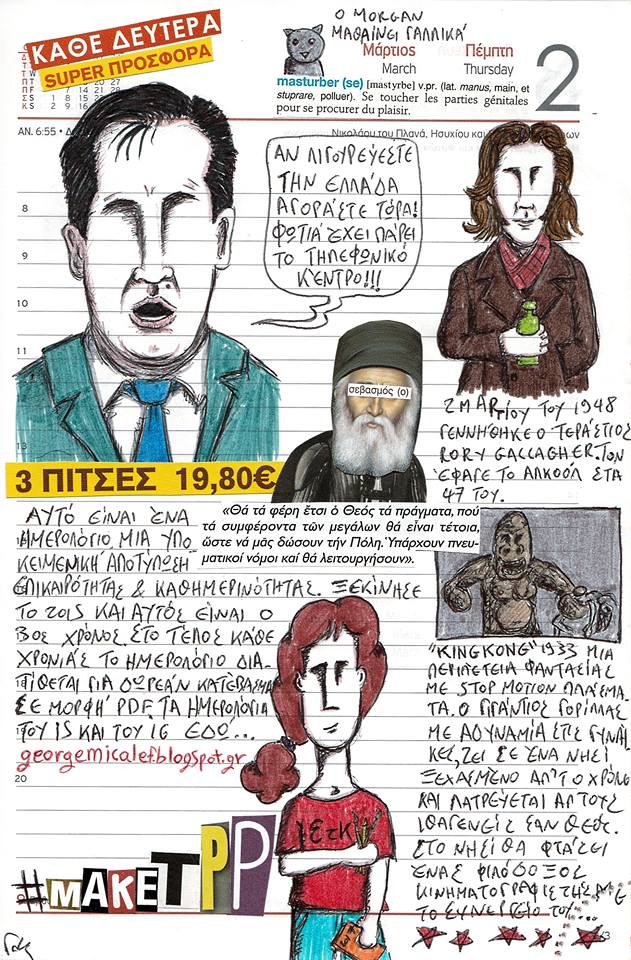 ΚΑΘΕ ΔΕΥΤΕΡΑ
SUPER ΠΡΟΣΦΟΡΑ
Ο MORGAN
ΜΑΘΑΙΝΕΙ ΓΑΛΛΙΚΑ
Μάρτιος Πέμπτη
March Thursday
2
masturber (se) [mastyrbe] v.pr. (lat. manus, main, et
stuprare, polluer). Se toucher les parties génitales
pour se procurer du plaisir.
ΑΝ. 6:55
Νικολάου του Πλανά, Ησυχίου και
ΑΝ ΛΙΓΟΥΡΕΥΕΣΤΕ
ΤΗΝ ΕΛΛΑΔΑ
ΑΓΟΡΑΣΤΕ ΤΩΡΑ!
ΦΩΤΙΑ ΈΧΕΙ ΠΑΡΕΙ
ΤΟ ΤΗΛΕΦΩΝΙΚΟ
ΚΕΝΤΡΟ!!!
8
9
10
11
13
σεβασμός (ο)
2 ΜΑΡΤΙΟΥ ΤΟΥ 1948
ΓΕΝΝΗΘΗΚΕ Ο ΤΕΡΑΣΤΙΟΣ
RORY GALLAGHER. ΤΟΝ
ΕΦΑΓΕ ΤΟ ΑΛΚΟΟΛ ΣΤΑ
47 ΤΟΥ.
3 ΠΙΤΣΕΣ 19,80€
«Θά τά φέρη ἔτσι ὁ Θεός τά πράγματα, πού
τά συμφέροντα τῶν μεγάλων θά εἶναι τέτοια,
ὥστε νά μᾶς δώσουν τήν Πόλη. Ὑπάρχουν πνευ-
ματικοί νόμοι καί θά λειτουργήσουν».
ΑΥΤΟ ΕΙΝΑΙ ΕΝΑ
ΗΜΕΡΟΛΟΓΙΟ ΜΙΑ ΥΠΟ
ΚΕΙΜΕΝΙΚΗ ΑΠΟΤΥΠΩΣΗ
ΕΠΙΚΑΙΡΟΤΗΤΑΣ & ΚΑΘΗΜΕΡΙΝΟΤΗΤΑΣ. ΞΕΚΙΝΗΣΕ
ΤΟ 2015 ΚΑΙ ΑΥΤΟΣ ΕΙΝΑΙ Ο
3ος ΧΡΟΝΟΣ. ΣΤΟ ΤΕΛΟΣ ΚΑΘΕ
ΧΡΟΝΙΑΣ ΤΟ ΗΜΕΡΟΛΟΓΙΟ ΔΙΑ-
ΤΙΘΕΤΑΙ ΓΙΑ ΔΩΡΕΑΝ ΚΑΤΕΒΑΣΜΑ
ΣΕ ΜΟΡΦΗ PDF. ΤΑ ΗΜΕΡΟΛΟΓΙΑ
ΤΟΥ 15 ΚΑΙ ΤΟΥ 16 ΕΔΩ...
georgemicalef.blogspot.gr
20
"KING KONG" 1933 ΜΙΑ
ΠΕΡΙΠΕΤΕΙΑ ΦΑΝΤΑΣΙΑΣ
ΜΕ STOP MOTION ΠΛΑΣΜΑ
ΤΑ. Ο ΓΙΓΑΝΤΙΟΣ ΓΟΡΙΛΛΑΣ
ΜΕ ΑΔΥΝΑΜΙΑ ΣΤΙΣ ΓΥΝΑΙ
ΚΕΣ, ΖΕΙ ΣΕ ΕΝΑ ΝΗΣΙ
ΞΕΧΑΣΜΕΝΟ ΑΠ' Τ Ο ΧΡΟΝΟ
ΚΑΙ ΛΑΤΡΕΥΕΤΑΙ ΑΠ ΤΟΥΣ
ΙΘΑΓΕΝΕΙΣ ΣΑΝ ΘΕΟΣ.
ΣΤΟ ΝΗΣΙ ΘΑ ΦΤΑΣΕΙ
ΕΝΑΣ ΦΙΛΟΔΟΞΟΣ
ΚΙΝΗΜΑΤΟΓΡΑΦΙΣΤΗΣ ΜΕ
ΤΟ ΣΥΝΕΡΓΕΙΟ ΤΟΥ...
#MAKETPP